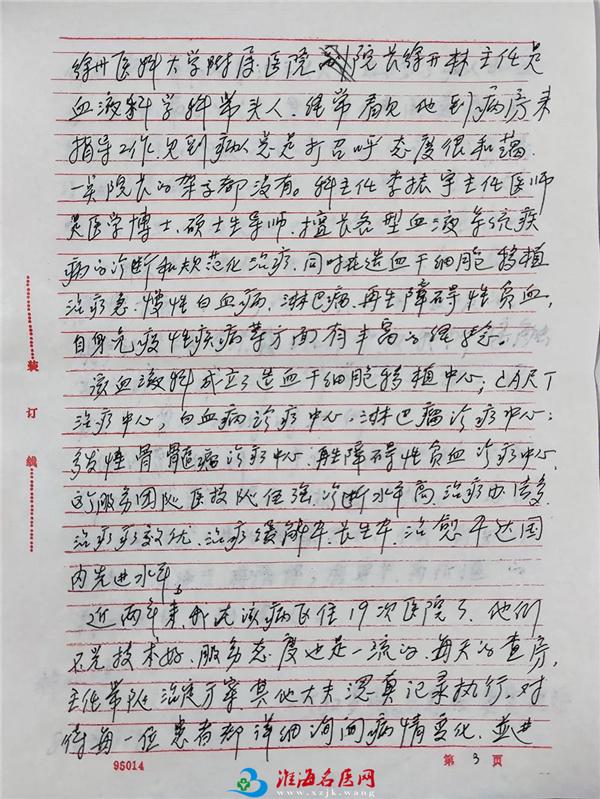 徐州医科大学附属医院副院长徐开林主任是
血液科学科带头人，经常看见他到病房来
指导工作，见到病人总是打召呼态度很和蔼，
一点院长的架子都没有。科主任李振宇主任医师
是医学博士、硕士生导师，擅长各型血液系统疾
病的诊断和规范化治疗，同时在造血干细胞移植
治疗急、慢性白血病、淋巴瘤、再生障碍性贫血、
自身免疫性疾病等方面有丰富的经验。
该血液科成立了造血干细胞移植中心；CART
治疗中心，白血病诊疗中心，淋巴瘤诊疗中心；
多发性骨髓瘤诊疗中心，再生障碍性贫血诊疗中心
这个服务团队医技队伍强，诊断水平高，治疗办法多，
治疗疗效优，治疗缓解率、长生存、治愈率达国
内先进水平。
近两年来，我在该病区住19次医院了，他们
不光技术好，服务态度也是一流的，每天的查房，
主任带队，治疗方案，其他大夫认真记录执行，对
待每一位患者都详细询问病情变化，并进
装
订
线
95014
第3页
淮海名医网
www.xzjk.wang